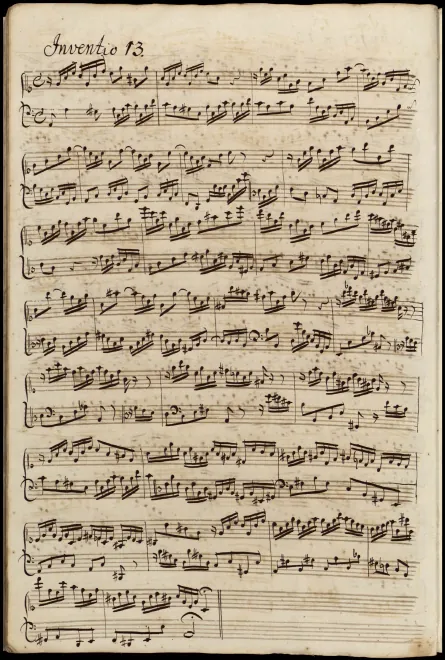 Inventio 13